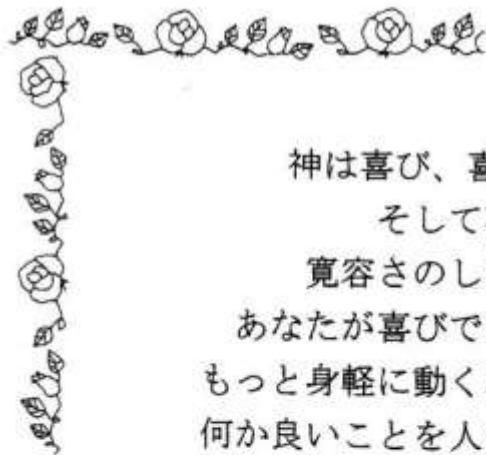 神は喜び、喜
そして
寛容さのし
あなたが喜びで
もっと身軽に動く
何か良いことを人